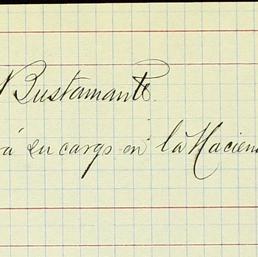 Bustamante.
á su cargo en la Hacien